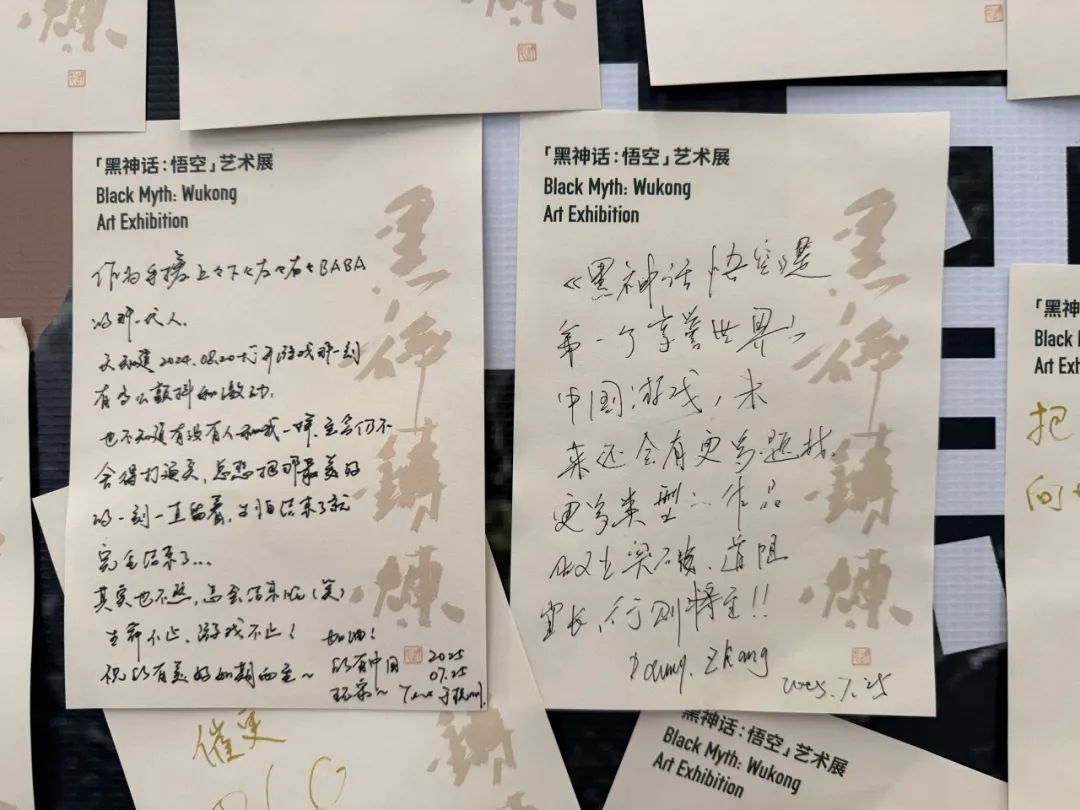 「黑神话:悟空」艺术展
Black Myth: Wukong
Art Exhibition
作为手搓上上下下左右左右BABA
的那一代人,
天知道2024.08.20打开游戏那一刻
有多么颤抖和激动,
也不知道有没有人和我一样,至今仍不
舍得打通关,总想把那最美好
的一刻一直留着,生怕结束了就
完全结束了...
其实也不然,高会结束临(笑)
生命不止、游戏不止!
祝所有美好如期而至~
加油!
所有中国
玩家~
2025
07.25
黑神话
「黑神话:悟空」艺术展
Black Myth: Wukong
Art Exhibition
《黑神话悟空》是
第一个享誉世界的
中国游戏,未
来还会有更多题材,
更多类型的作品
道阻
且长,行则将至!!
Danny. Zhang
2025.7.25
黑神话
「黑神
Black
Art Exh
把
向
催更
DLC
「黑神话:悟空」艺术展
Black Myth: Wukong
Art Exhibition